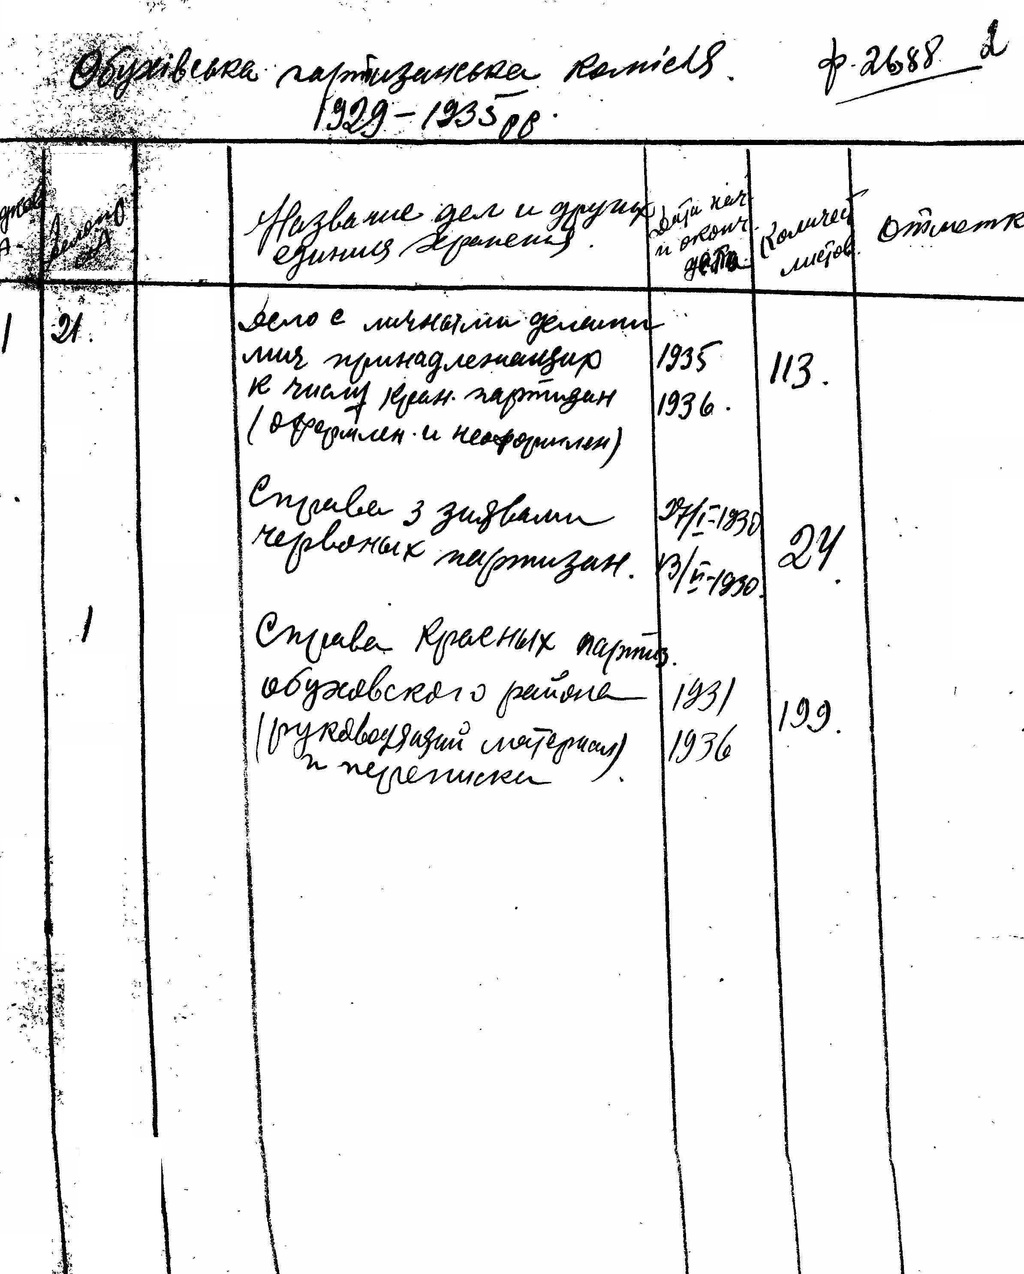 Обухівська партизанська комісія.
ф. 2688 2
1929–1935 рр.
Название дел и других
единиц хранения.
Дата нач.
и оконч.
дела
Количест
листов
Отметк
1 21.
Дело с личными делами
лиц принадлежащих
к числу красн. партизан
(оформлен. и неоформлен)
1935
1936.
113.
Справа з заявами
червоных партизан.
27/I-1930
13/II-1930.
24.
1
Справа Красных партиз.
обуховского района
(руководящий материал)
и переписки
1931
1936
199.